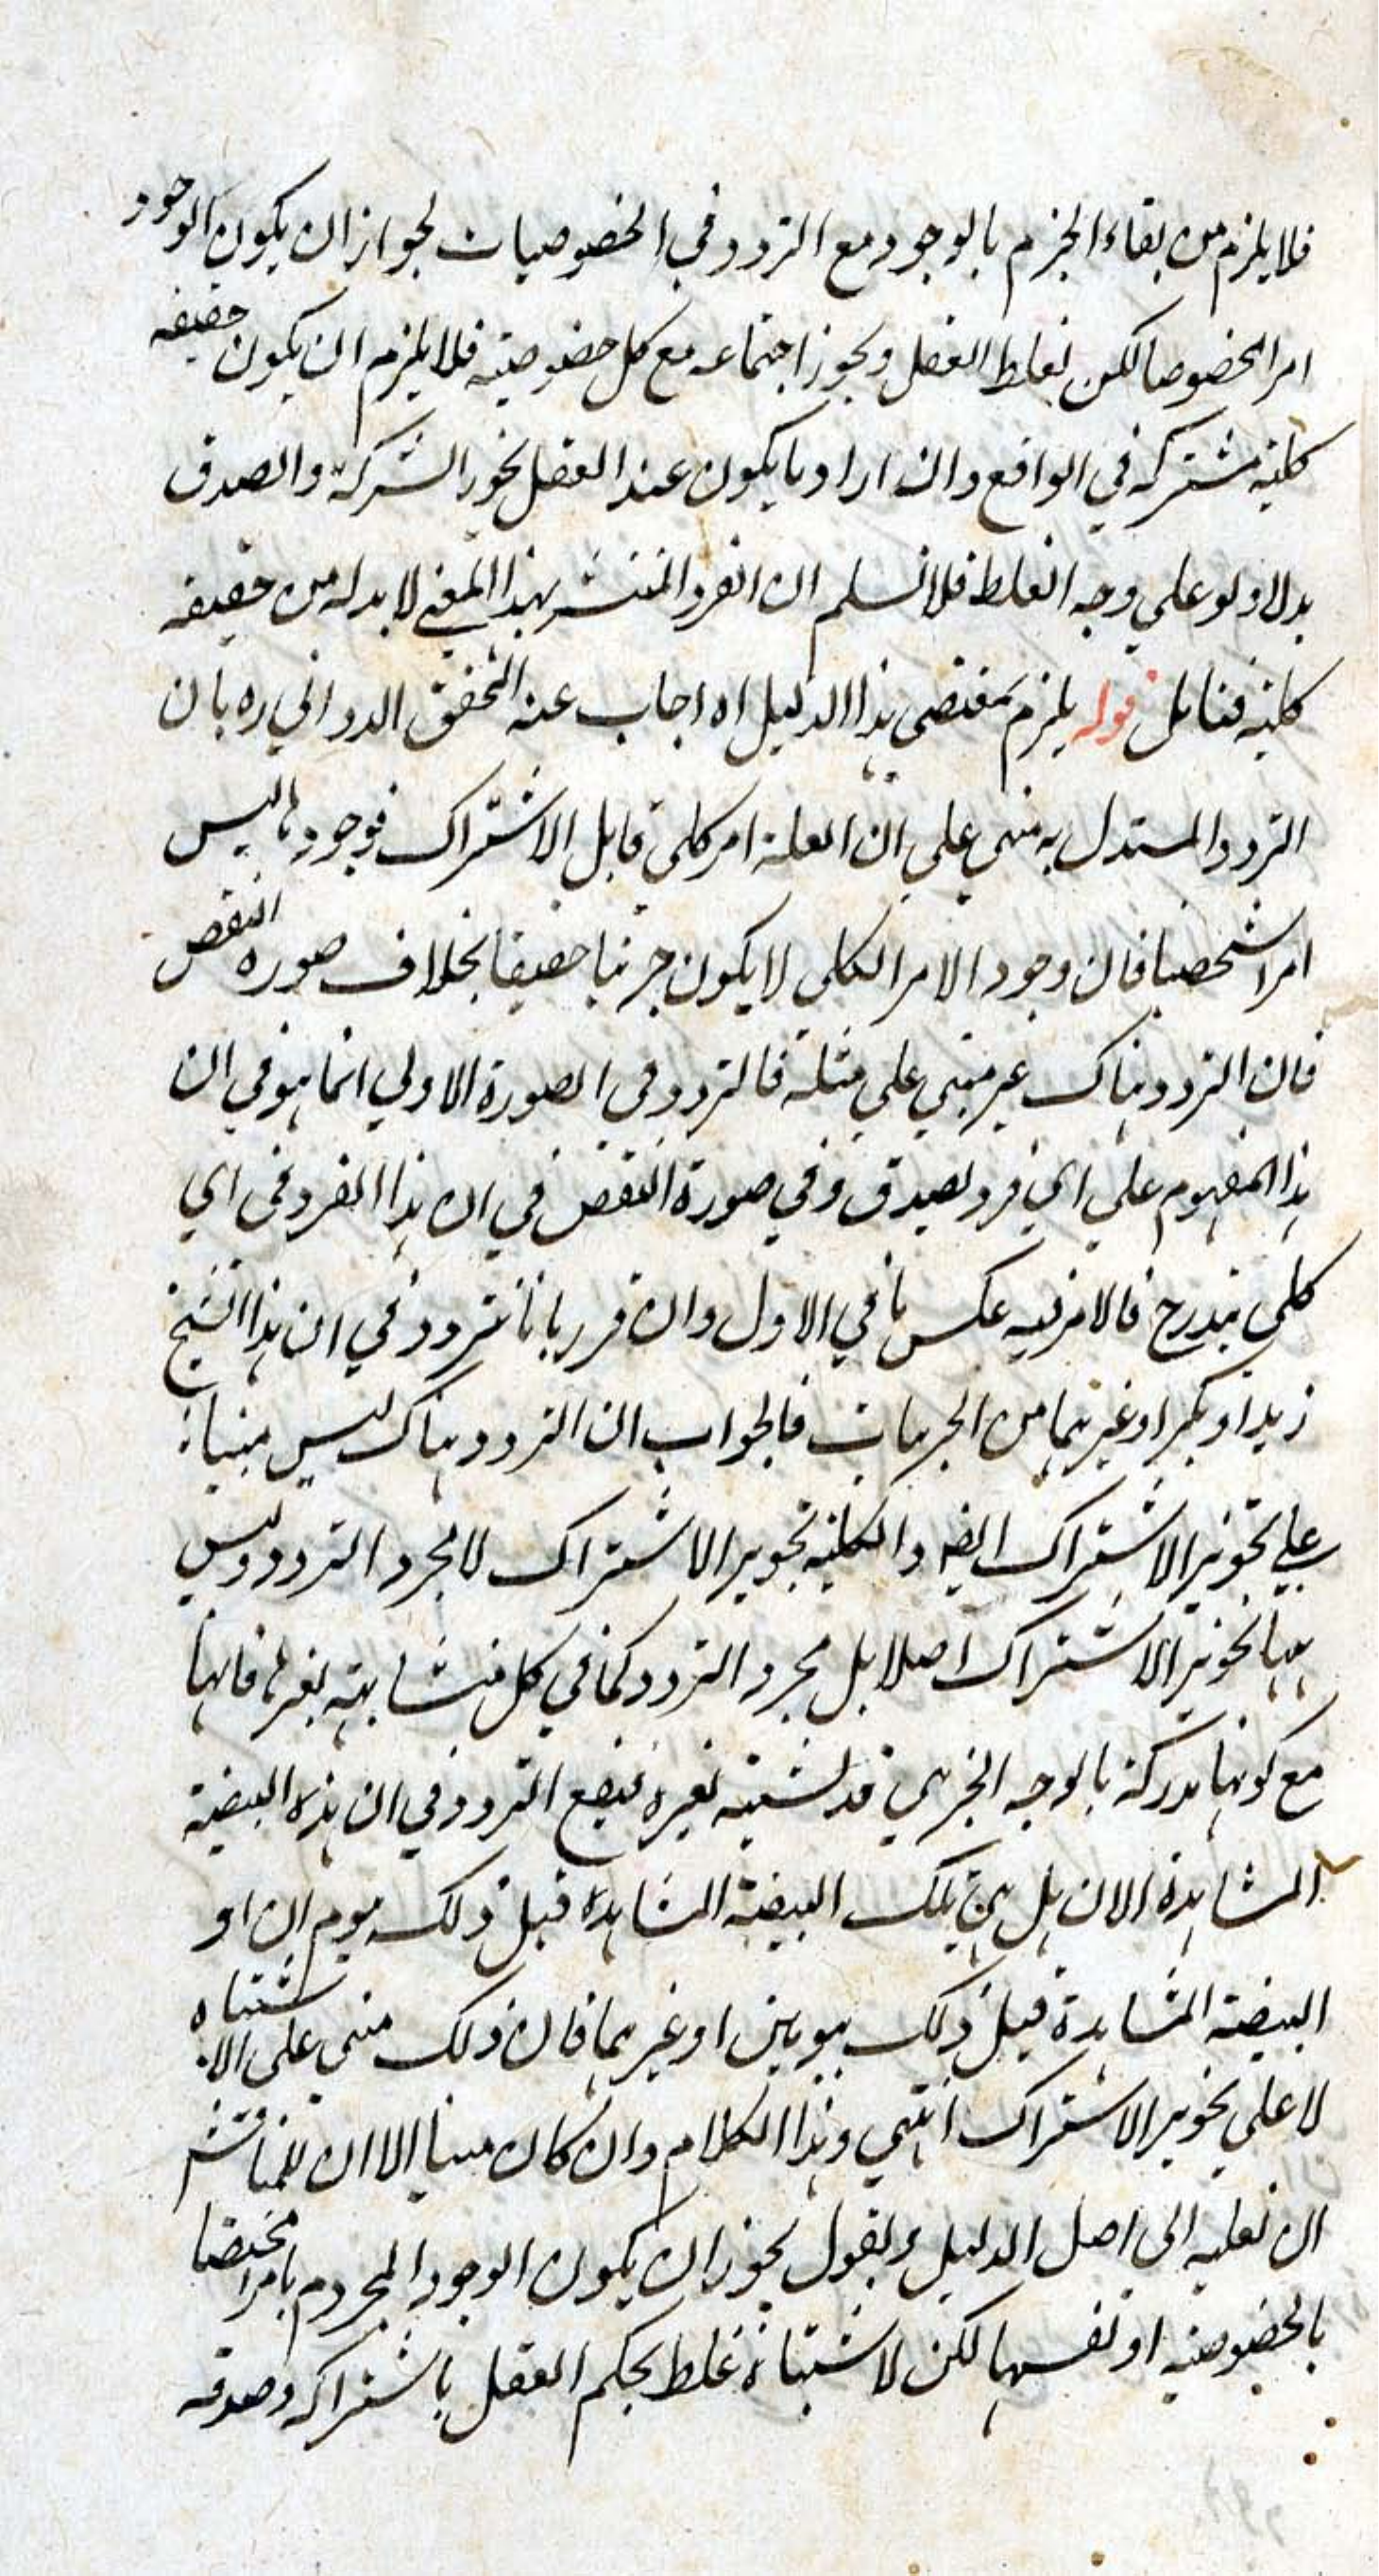 فلا يلزم من بقاء الجزم بالوجود مع التردد في الخصوصيات لجواز ان يكون الوجود
امرا مخصوصا لكن يغلط العقل ويجوز اجتماعه مع كل خصوصية فلا يلزم ان يكون حقيقه
كلية مشتركه في الواقع وان اراد ما يكون عند العقل بحور الشركة والصدق
بدلا ولو على وجه الغلط فلا نسلم ان الفرد المنتشر بهذا المعنى لا بد له من حقيقه
كلية فتامل قوله يلزم بمقتضى هذا الدليل اه اجاب عنه المحقق الدواني ره بان
التردد المستدل به مبني على ان العلة امر كلي قابل الاشتراك فوجودها ليس
امرا شخصيا فان وجود الامر الكلي لا يكون جزئيا حقيقيا بخلاف صوره النقض
فان التردد هناك غير مبني على مثله فالتردد في الصورة الاولى انما هو في ان
هذا المفهوم على اي فرد يصدق وفي صورة النقض في ان هذا الفرد في اي
كلي يندرج فالامر فيه عكس ما في الاول وان قرر بانا نتردد في ان هذا الشبح
زيد او بكر او غيرهما من الجزئيات فالجواب ان التردد هناك ليس مبنيا
على تجويز الاشتراك ايضه والكلية تجويز الاشتراك لا مجرد التردد وليس
ههنا تجويز الاشتراك اصلا بل مجرد التردد كما في كل متشابهة بغيرها فانها
مع كونها مدركة بالوجه الجزئي قد تشتبه بغيره فيقع التردد في ان هذه البيضة
المشاهدة الان هل هي تلك البيضة المشاهدة قبل ذلك بيوم ان او
البيضة المشاهدة قبل ذلك بيومين او غيرهما فان ذلك مبني على الاشتباه
لا على تجويز الاشتراك انتهى وهذا الكلام وان كان مبنيا الا ان للمناقش
ان نعليه الى اصل الدليل ويقول يجوز ان يكون الوجود المجزوم به امرا مختصا
بالخصوصية او نفسها لكن لاشتباه غلط يحكم العقل باشتراكه وصدقه